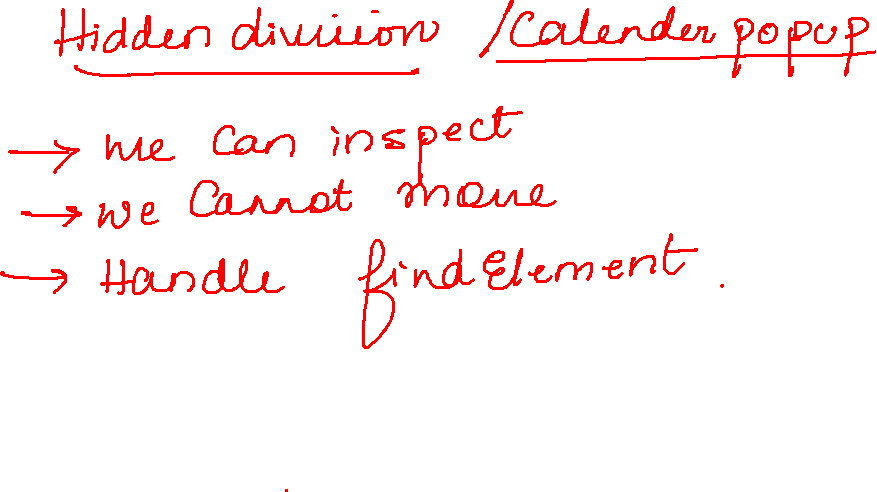 Hidden division /Calender popup
→ we can inspect
→ we cannot move
→ Handle findElement.